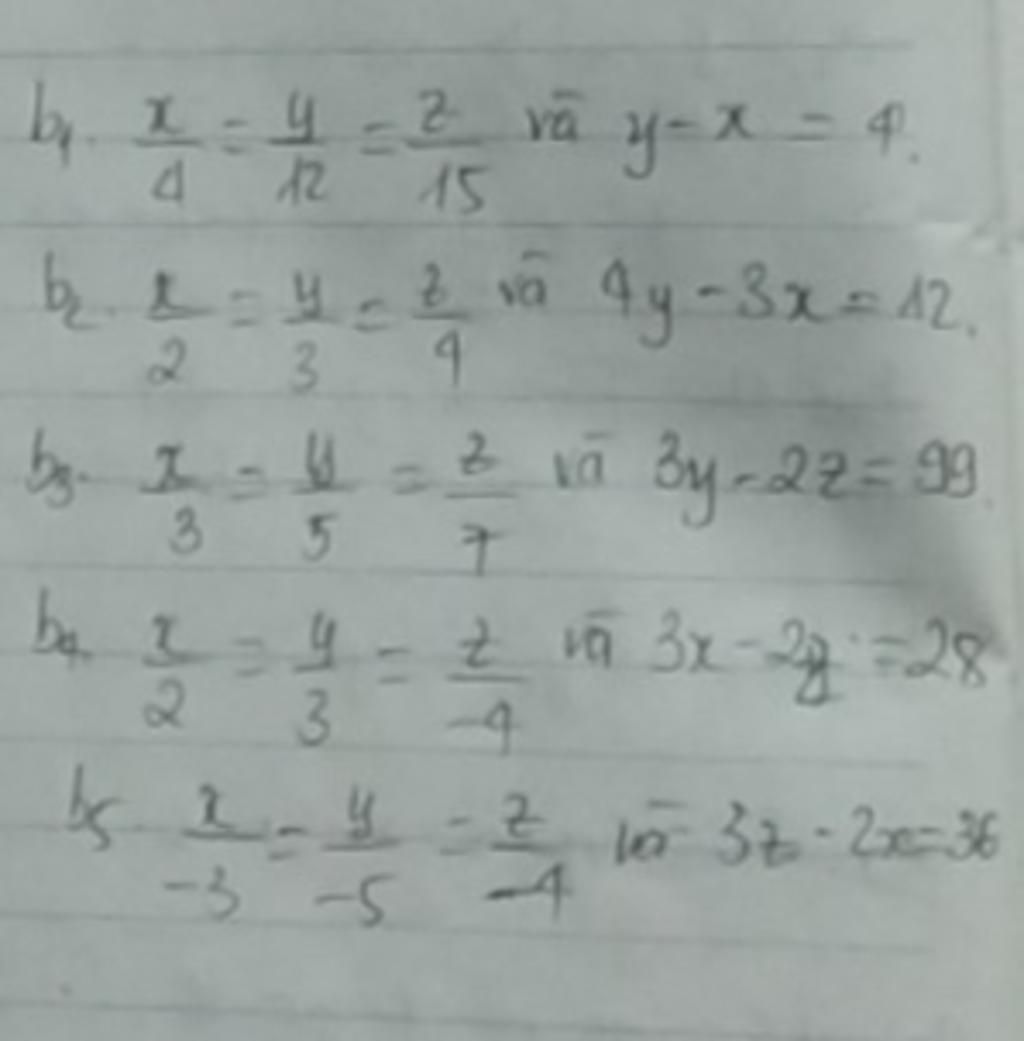 b1. x/4 = y/12 = z/15 và y - x = 4.
b2. x/2 = y/3 = z/4 và 4y - 3x = 12.
b3. x/3 = y/5 = z/7 và 3y - 2z = 99
b4. x/2 = y/3 = z/-4 và 3x - 2z = 28
b5. x/-3 = y/-5 = z/-4 và 3z - 2x = 36